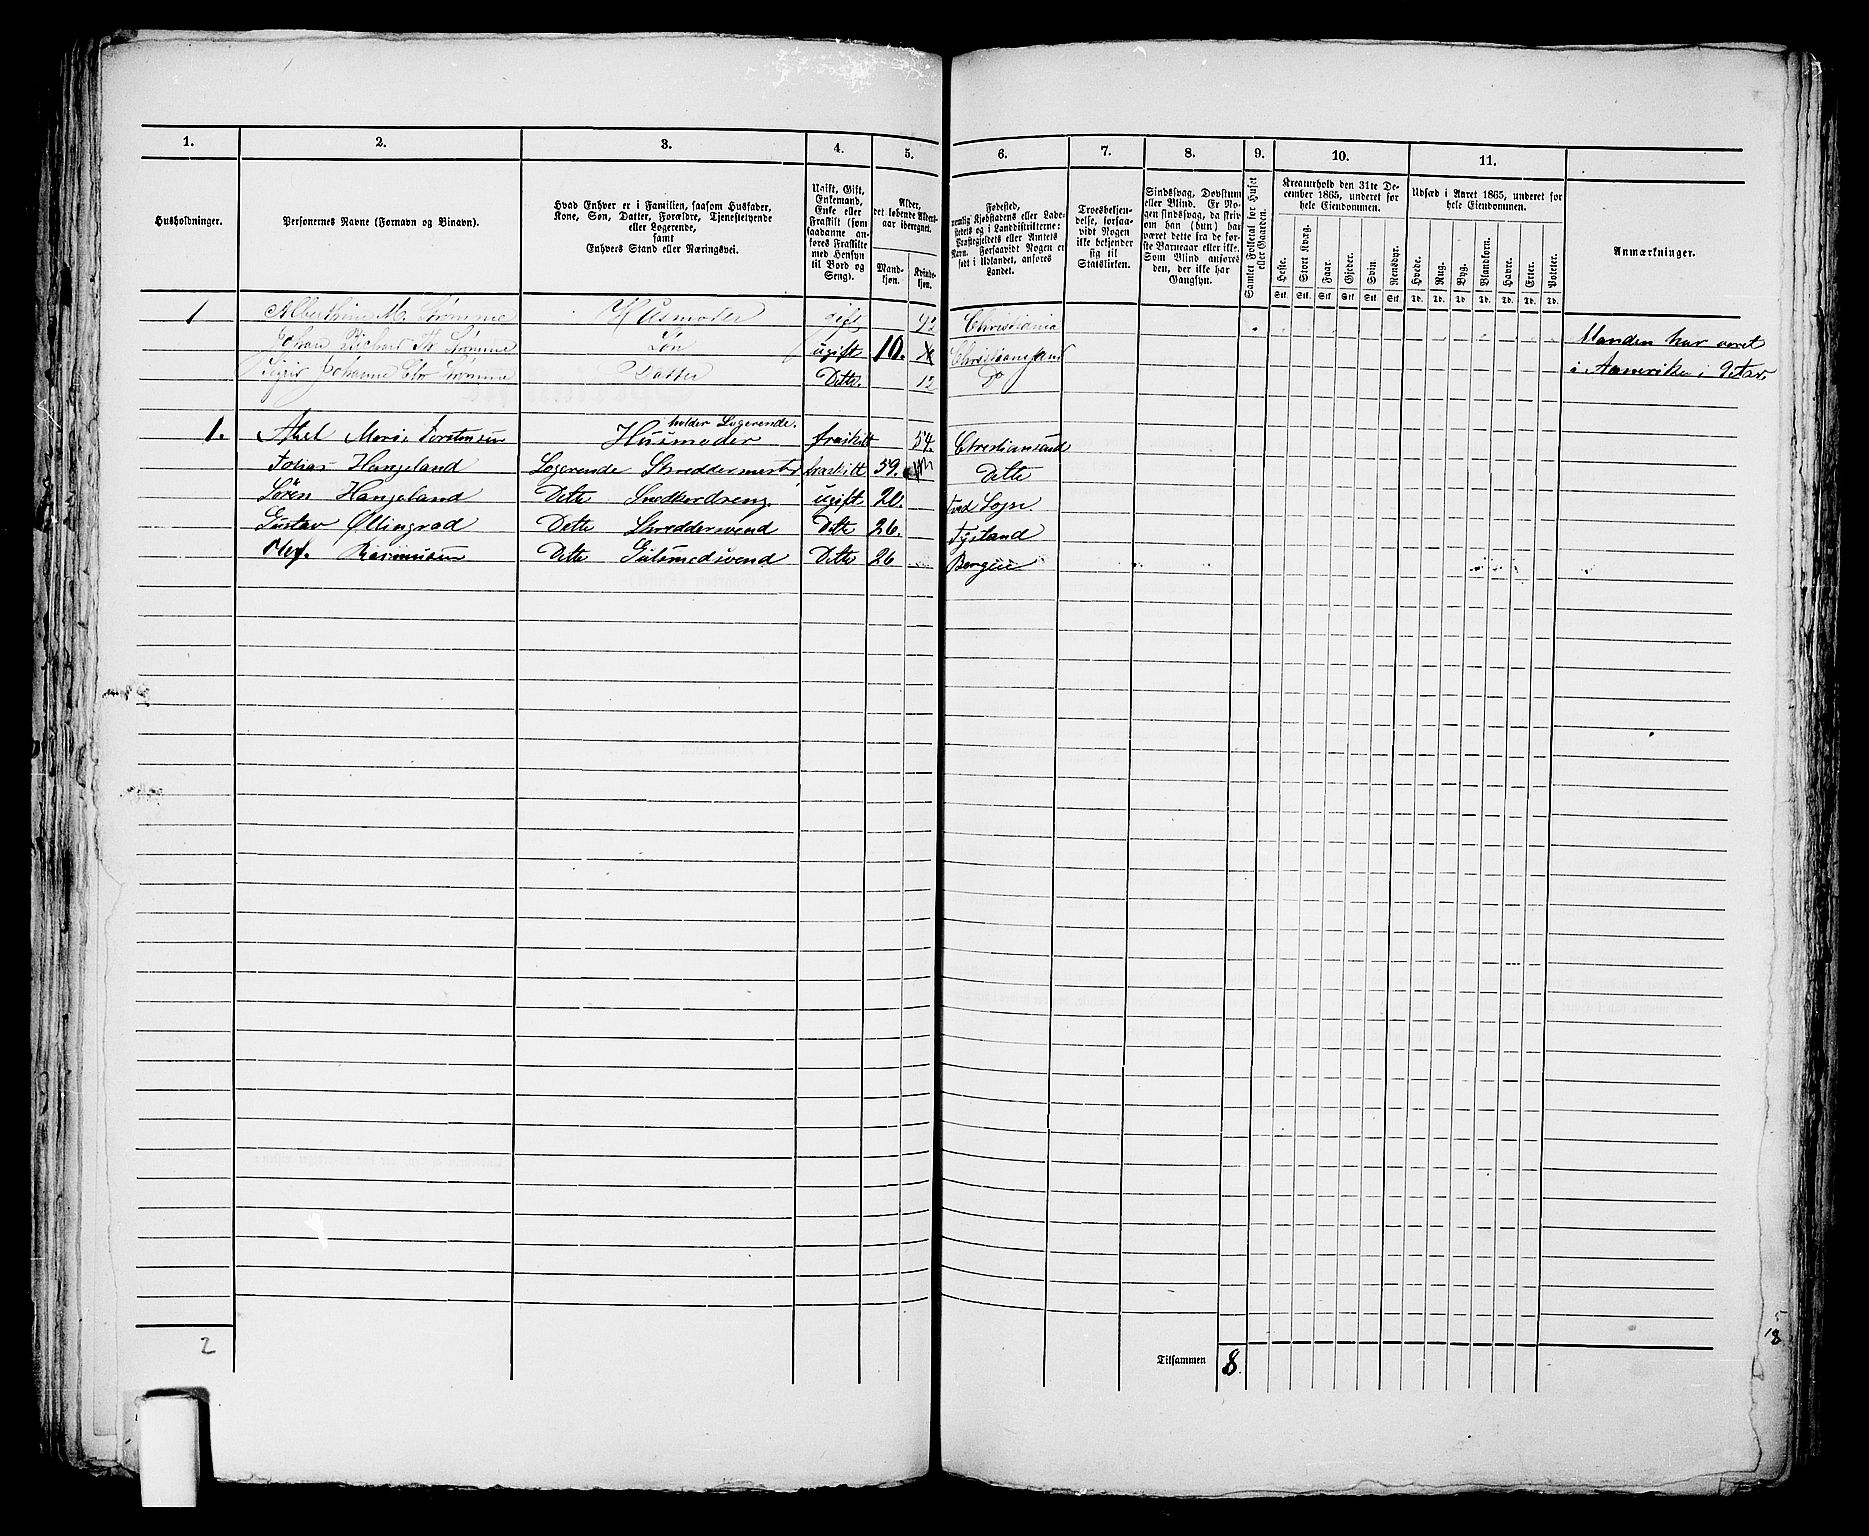 1. 2. 3. 4. 5. 6. 7. 8. 9. 10. 11.
Husholdninger.
Personernes Navne (Fornavn og Binavn).
Hvad Enhver er i Familien, saasom Husfader,
Kone, Søn, Datter, Forældre, Tjenestetyende
eller Logerende,
samt
Enhvers Stand eller Næringsvei.
Ugift, Gift,
Enkemand,
Enke eller
Fraskilt (som
saadanne an-
føres Fraskilte
med Hensyn
til Bord og
Seng).
Alder,
det løbende Alders-
aar iberegnet.
Mand-
kjøn.
Kvinde-
kjøn.
Fødested,
nemlig Kjøbstadens eller Lade-
stedets og i Landdistrikterne:
Præstegjeldets eller Amtets
Navn. Forsaavidt Nogen er
født i Udlandet, anføres
Landet.
Troesbekjen-
delse, forsaa-
vidt Nogen
ikke bekjender
sig til
Statskirken.
Sindssvag, Døvstum
eller Blind. Er No-
gen sindssvag, da skriv
om han (hun) har
været dette fra de før-
ste Barneaar eller ikke.
Som Blind anføres
den, der ikke har
Gangsyn.
Samlet Folketal for Huset
eller Gaarden.
Kreaturhold den 31te De-
cember 1865, underet for
hele Eiendommen.
Heste. Stort Kvæg. Faar. Gjeder. Svin. Rensdyr.
Stk. Stk. Stk. Stk. Stk. Stk.
Udsæd i Aaret 1865, underet for
hele Eiendommen.
Hvede. Rug. Byg. Blandkorn. Havre. Erter. Poteter.
Td. Td. Td. Td. Td. Td. Td.
Anmærkninger.
1 Alberthine M. Strømme Husmoder gift 42 Christiania
Johan Richard Strømme Søn ugift 10. Christianssand Manden har været
Johanne Strømme Datter Ditto. 12 Do i Amerika i
holder Logerende.
1. Marie Torstensen Husmoder fraskilt 54. Christiansand
Tobias Hangeland Logerende fraskilt 59. Ditto
Søren Hangeland Ditto Snedkerdreng ugift 20.
Gustav Ditto Skreddersvend Ditto 26.
Rasmusen Ditto Gulsmedsvend Ditto 26 Bergen
2
Tilsammen 8.